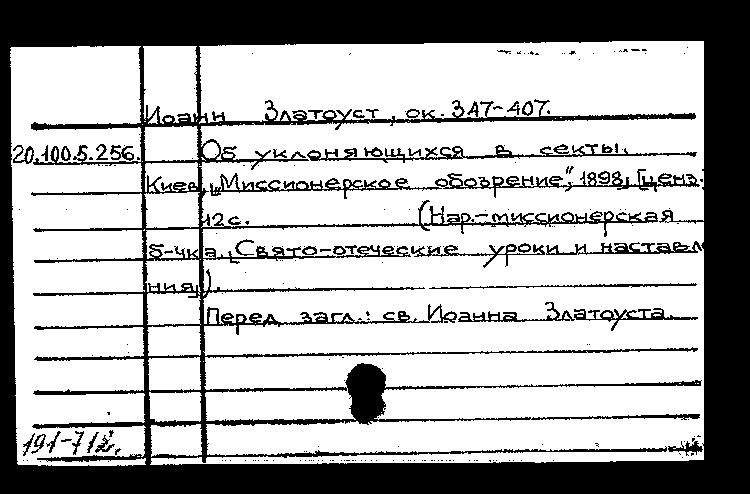 Иоанн Златоуст, ок. 347-407.
20.100.5.256. Об уклоняющихся в секты.
Киев, „Миссионерское обозрение“, 1898, [ценз.]
12с. (Нар.-миссионерская
б-чка. „Свято-отеческие уроки и наставле
ния„).
Перед загл.: св. Иоанна Златоуста.
191-71г.